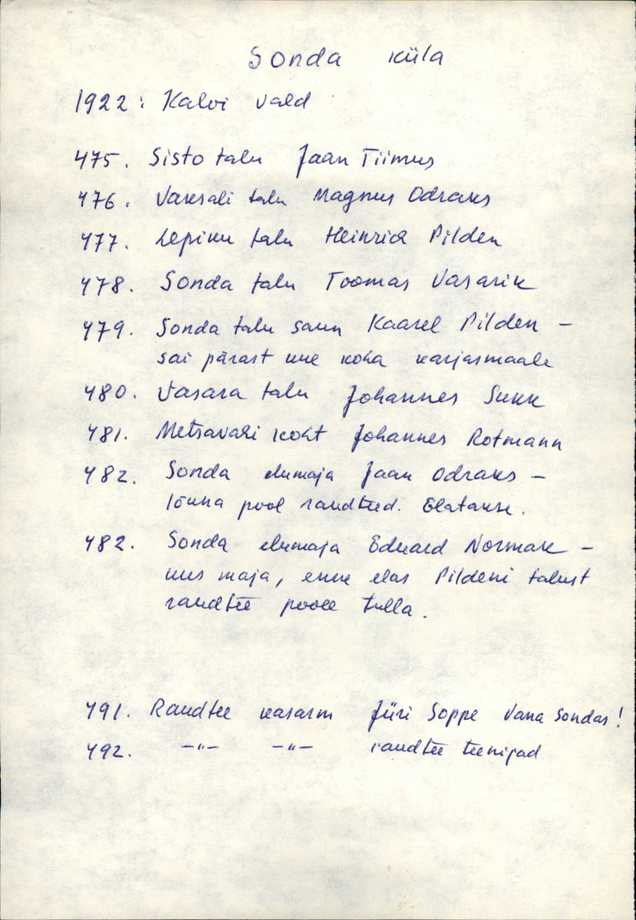 Sonda küla
1922: Kalvi vald
475. Sisto talu Jaan Tiimus
476. Vaksali talu Magnus Odraks
477. Lepiku talu Heinrich Pilden
478. Sonda talu Toomas Vasarik
479. Sonda talu saun Kaarel Pilden –
sai pärast uue koha karjasmaale
480. Vasara talu Johannes Sukk
481. Metsavahi koht Johannes Rotmann
482. Sonda elumaja Jaan Odraks –
lõuna pool raudteed. Elatakse.
482. Sonda elumaja Eduard Normak –
uus maja, enne elas Pildeni talust
raudtee poole tulla.
491. Raudtee kasarm Jüri Soppe Vana Sondas!
492. –"– –"– raudtee teenijad